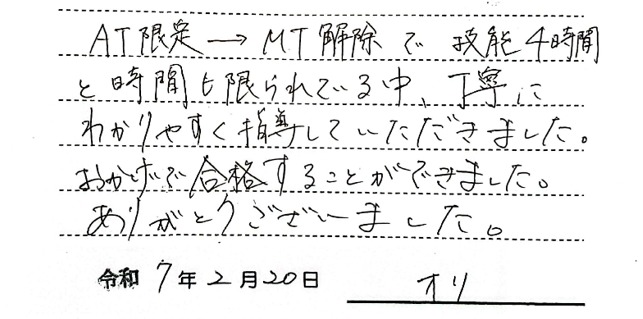 AT限定→MT解除で技能4時間
と時間も限られている中、丁寧に
わかりやすく指導していただきました。
おかげで合格することができました。
ありがとうございました。
令和 7年2月20日 オリ